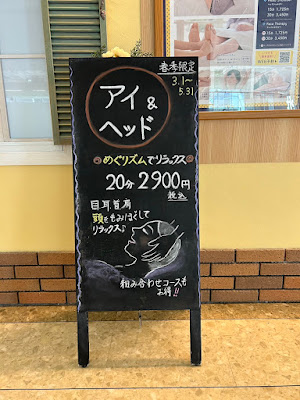 春季限定
3.1〜
5.31
アイ&
ヘッド
めぐリズムでリラックス
20分 2900円
税込
目耳首肩
頭をもみほぐして
リラックス♪
組み合わせコースも
お得!!